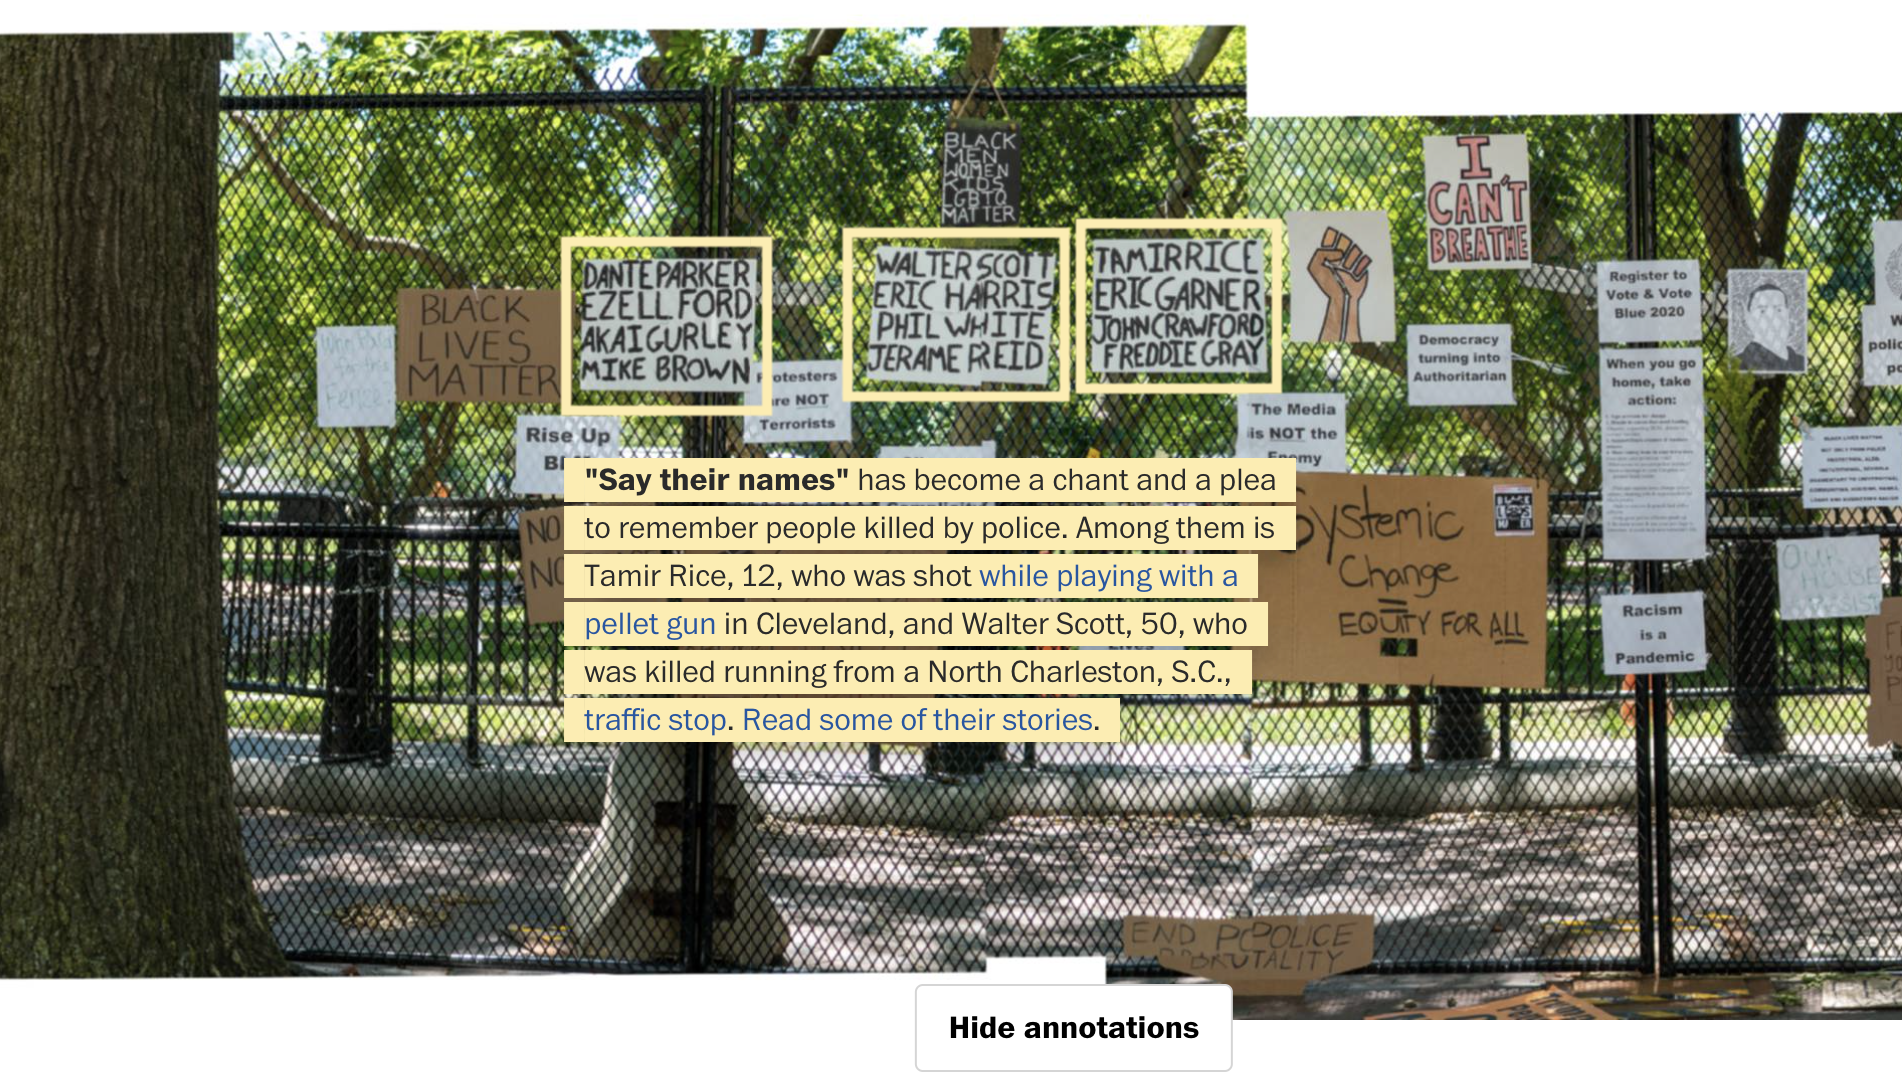 BLACK
MEN
WOMEN
KIDS
LGBTQ
MATTER
I
CAN'T
BREATHE
DANTE PARKER
EZELL FORD
AKAI GURLEY
MIKE BROWN
WALTER SCOTT
ERIC HARRIS
PHIL WHITE
JERAME REID
TAMIR RICE
ERIC GARNER
JOHN CRAWFORD
FREDDIE GRAY
BLACK
LIVES
MATTER
Who Paid
for this
Fence?
Protesters
are NOT
Terrorists
Rise Up
Register to
Vote & Vote
Blue 2020
Democracy
turning into
Authoritarian
When you go
home, take
action:
The Media
is NOT the
Enemy
"Say their names" has become a chant and a plea
to remember people killed by police. Among them is
Tamir Rice, 12, who was shot while playing with a
pellet gun in Cleveland, and Walter Scott, 50, who
was killed running from a North Charleston, S.C.,
traffic stop. Read some of their stories.
NO
Systemic
Change
=
EQUITY FOR ALL
BLACK LIVES MATTER
OUR
HOUSE
Racism
is a
Pandemic
END POLICE
BRUTALITY
Hide annotations